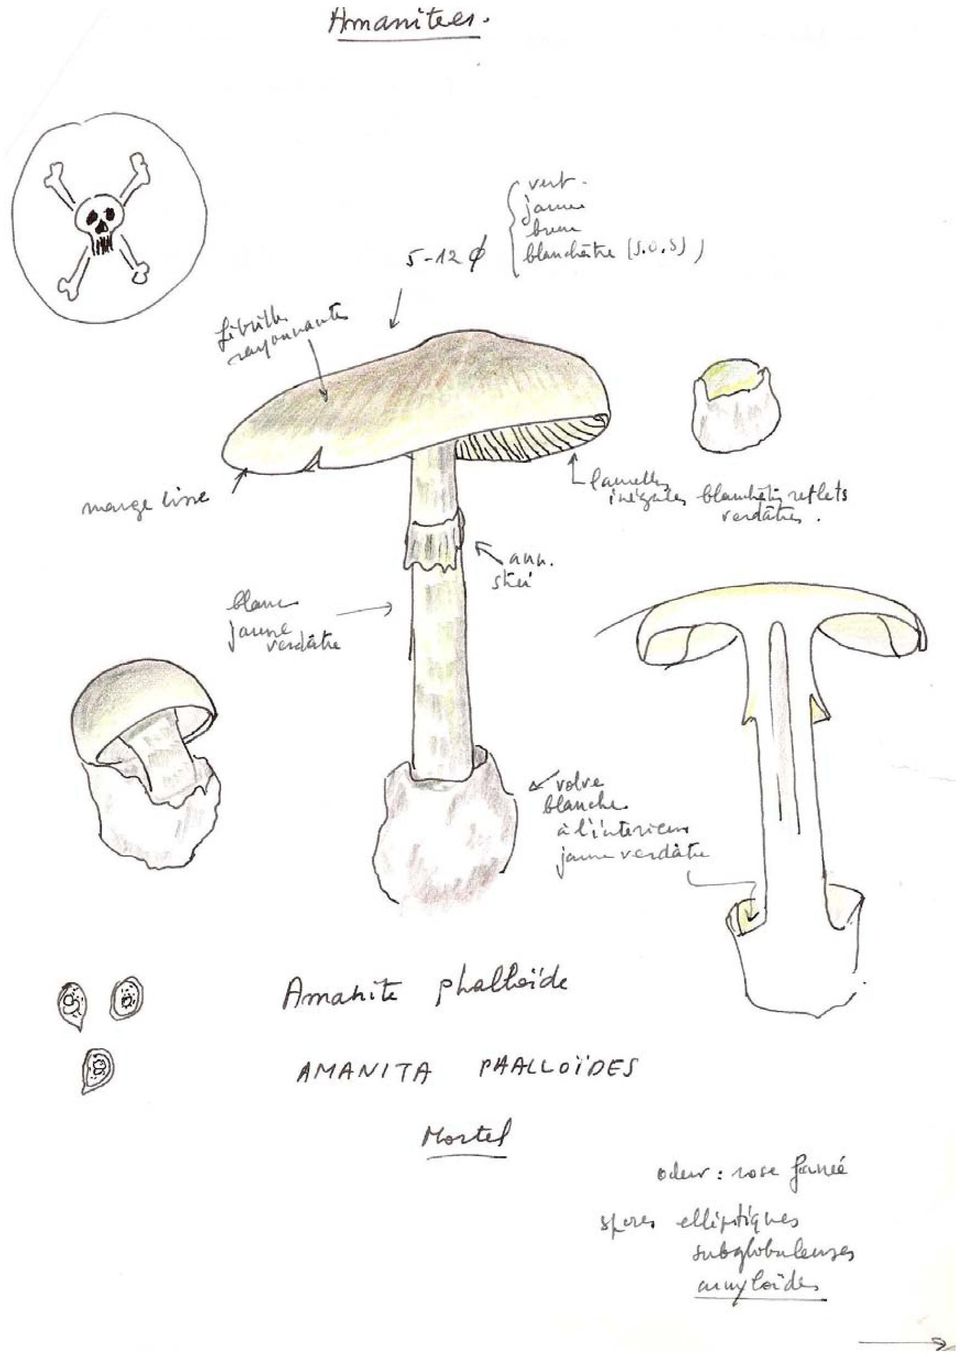 Amanitees.
5-12 ϕ
vert.
jaune
brun
blanchâtre (S.O.S)
fibrilles
rayonnantes
marge lisse
lamelles
inégales blanchâtres reflets
verdâtres.
ann.
strié
blanc
jaune
verdâtre
volve
blanche
à l'intérieur
jaune verdâtre
Amanite phalloïde
AMANITA PHALLOÏDES
Mortel
odeur : rose fanée
spores elliptiques
subglobuleuses
amyloïdes